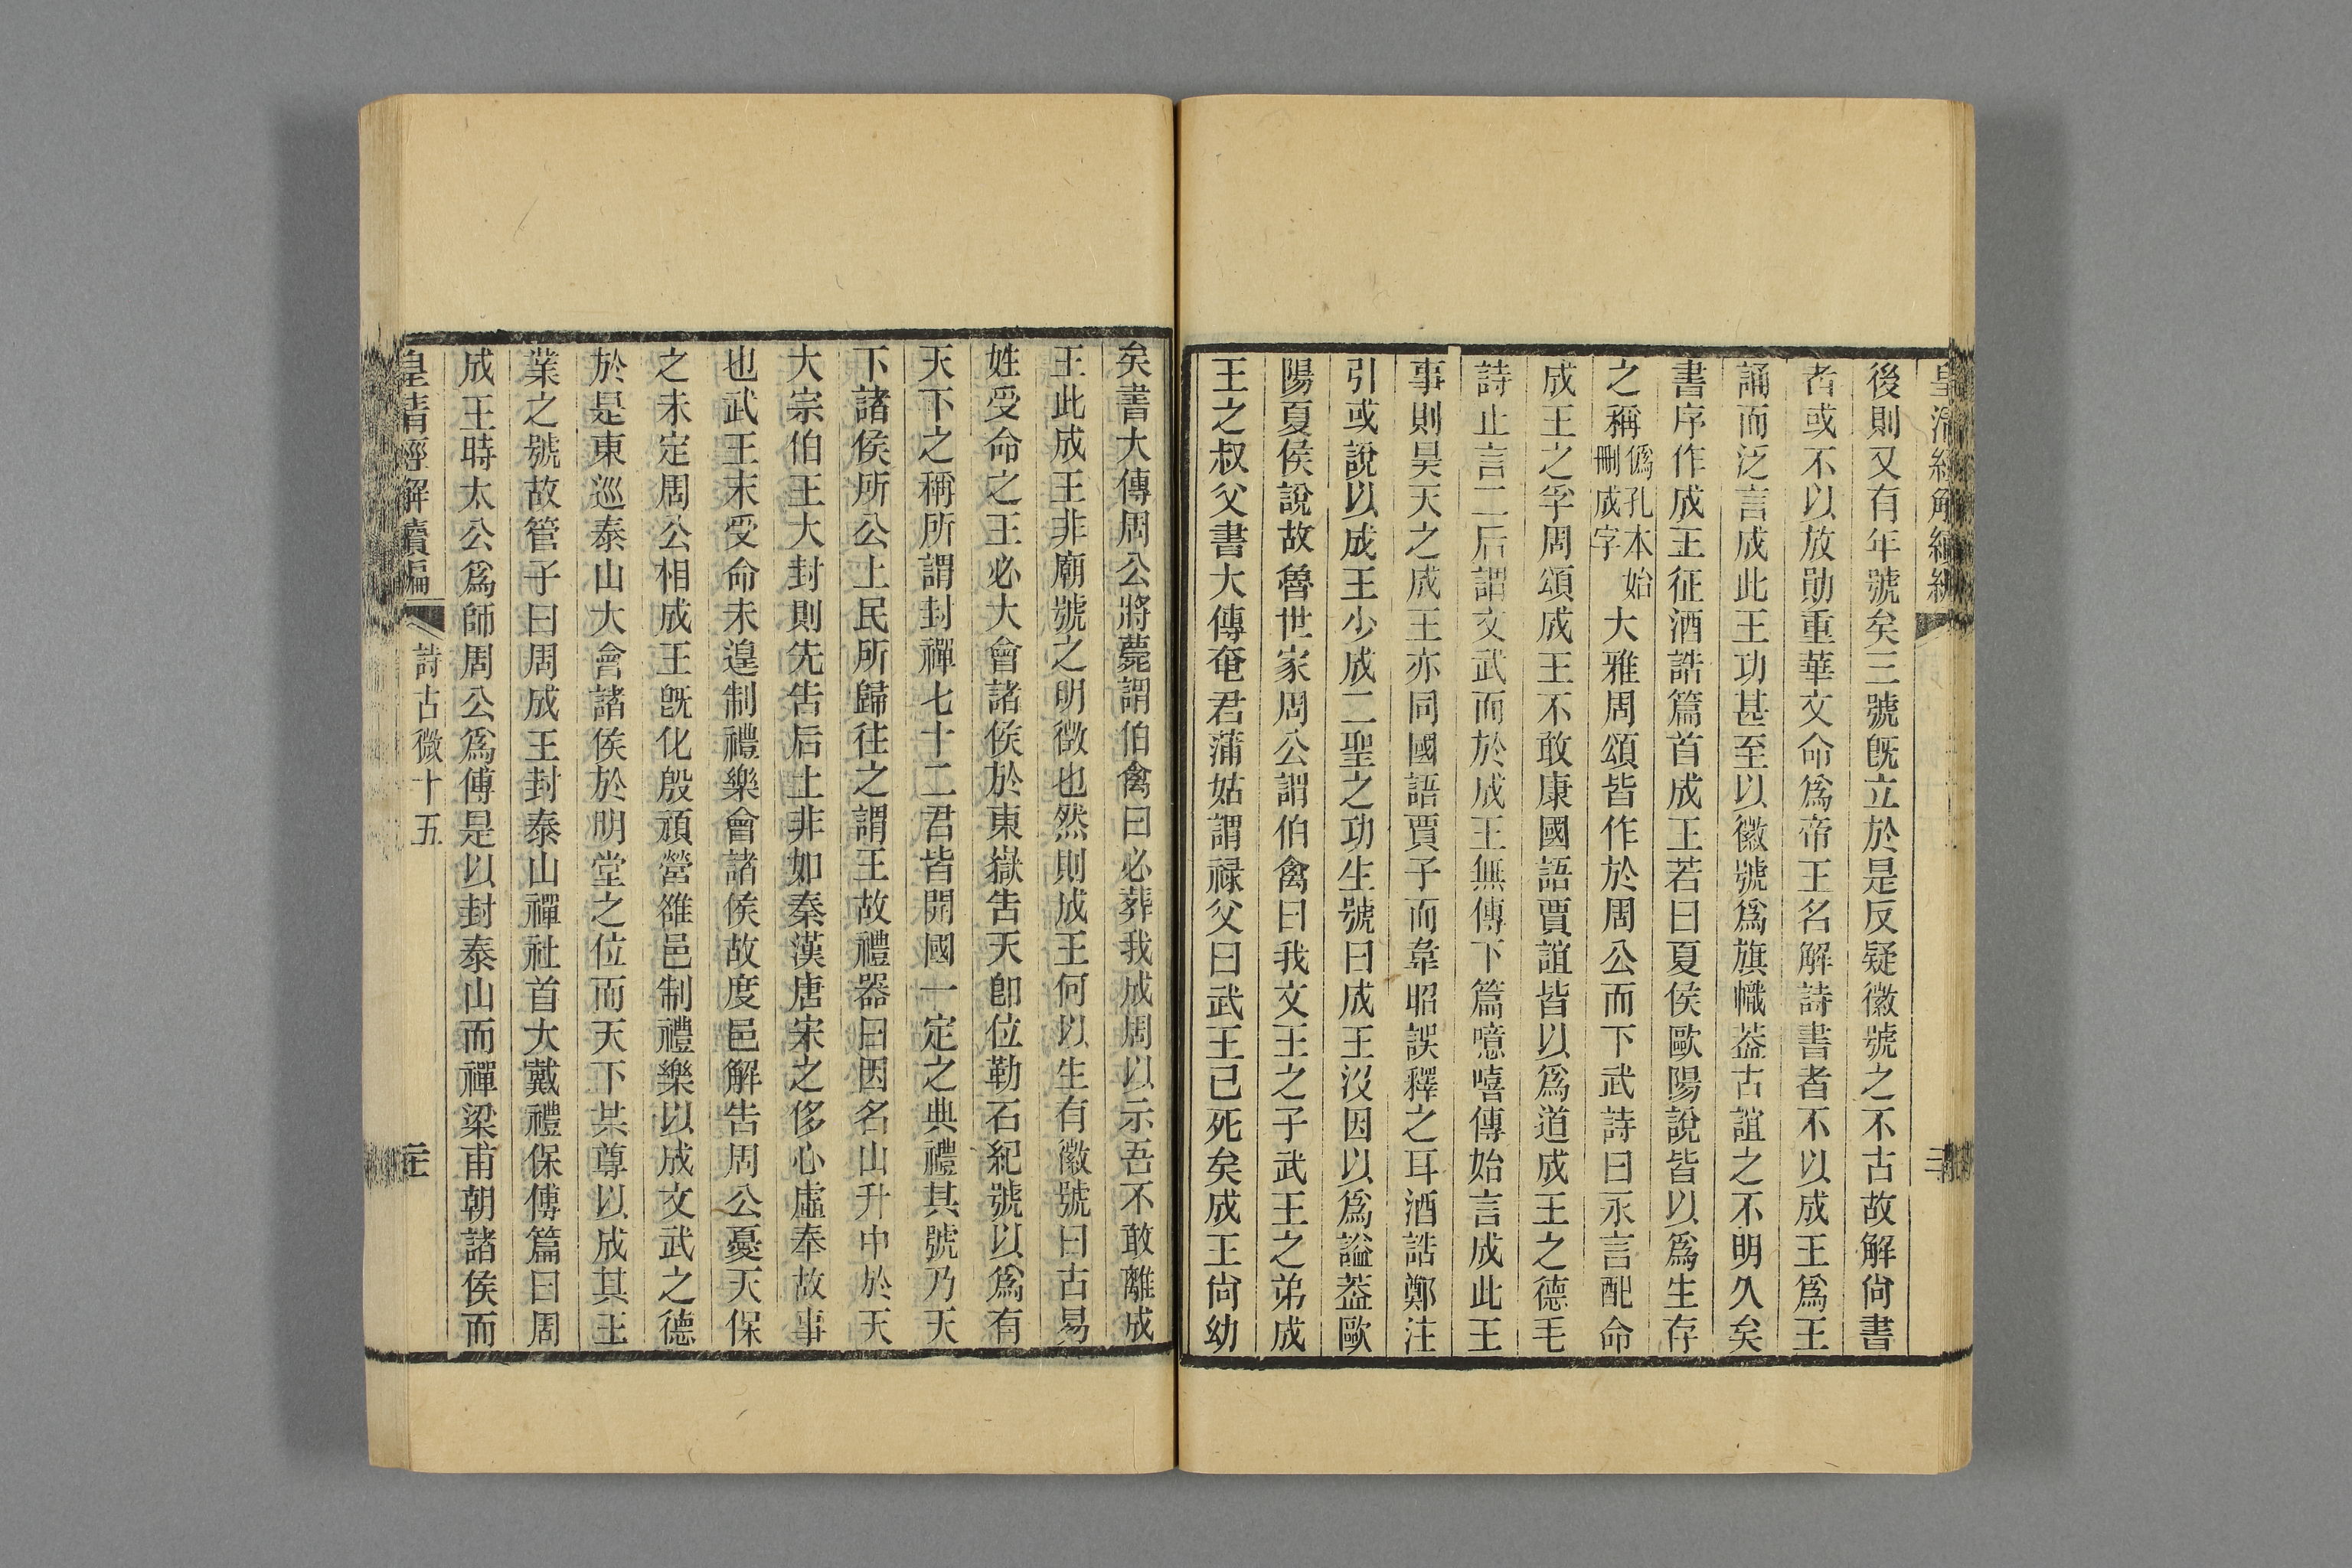 皇清經解續編
後則又有年號矣三號旣立於是反疑徽號之不古故解尙書
者或不以放勛重華文命爲帝王名解詩書者不以成王爲王
誦而泛言成此王功甚至以徽號爲旗幟葢古誼之不明久矣
書序作成王征酒誥篇首成王若曰夏侯歐陽說皆以爲生存
之稱僞孔本始刪成字大雅周頌皆作於周公而下武詩曰永言配命
成王之孚周頌成王不敢康國語賈誼皆以爲道成王之德毛
詩止言二后謂文武而於成王無傳下篇噫嘻傳始言成此王
事則昊天之成王亦同國語賈子而韋昭誤釋之耳酒誥鄭注
引或說以成王少成二聖之功生號曰成王沒因以爲謚葢歐
陽夏侯說故魯世家周公謂伯禽曰我文王之子武王之弟成
王之叔父書大傳奄君蒲姑謂祿父曰武王已死矣成王尙幼
矣書大傳周公將薨謂伯禽曰必葬我成周以示吾不敢離成
王此成王非廟號之明徵也然則成王何以生有徽號曰古易
姓受命之王必大會諸侯於東嶽告天卽位勒石紀號以爲有
天下之稱所謂封禪七十二君皆開國一定之典禮其號乃天
下諸侯所公上民所歸往之謂王故禮器曰因名山升中於天
大宗伯王大封則先告后土非如秦漢唐宋之侈心虛奉故事
也武王末受命未遑制禮樂會諸侯故度邑解告周公憂天保
之未定周公相成王旣化殷頑營雒邑制禮樂以成文武之德
於是東巡泰山大會諸侯於明堂之位而天下共尊以成其王
業之號故管子曰周成王封泰山禪社首大戴禮保傅篇曰周
成王時太公爲師周公爲傅是以封泰山而禪梁甫朝諸侯而
皇清經解續編
詩古微十五